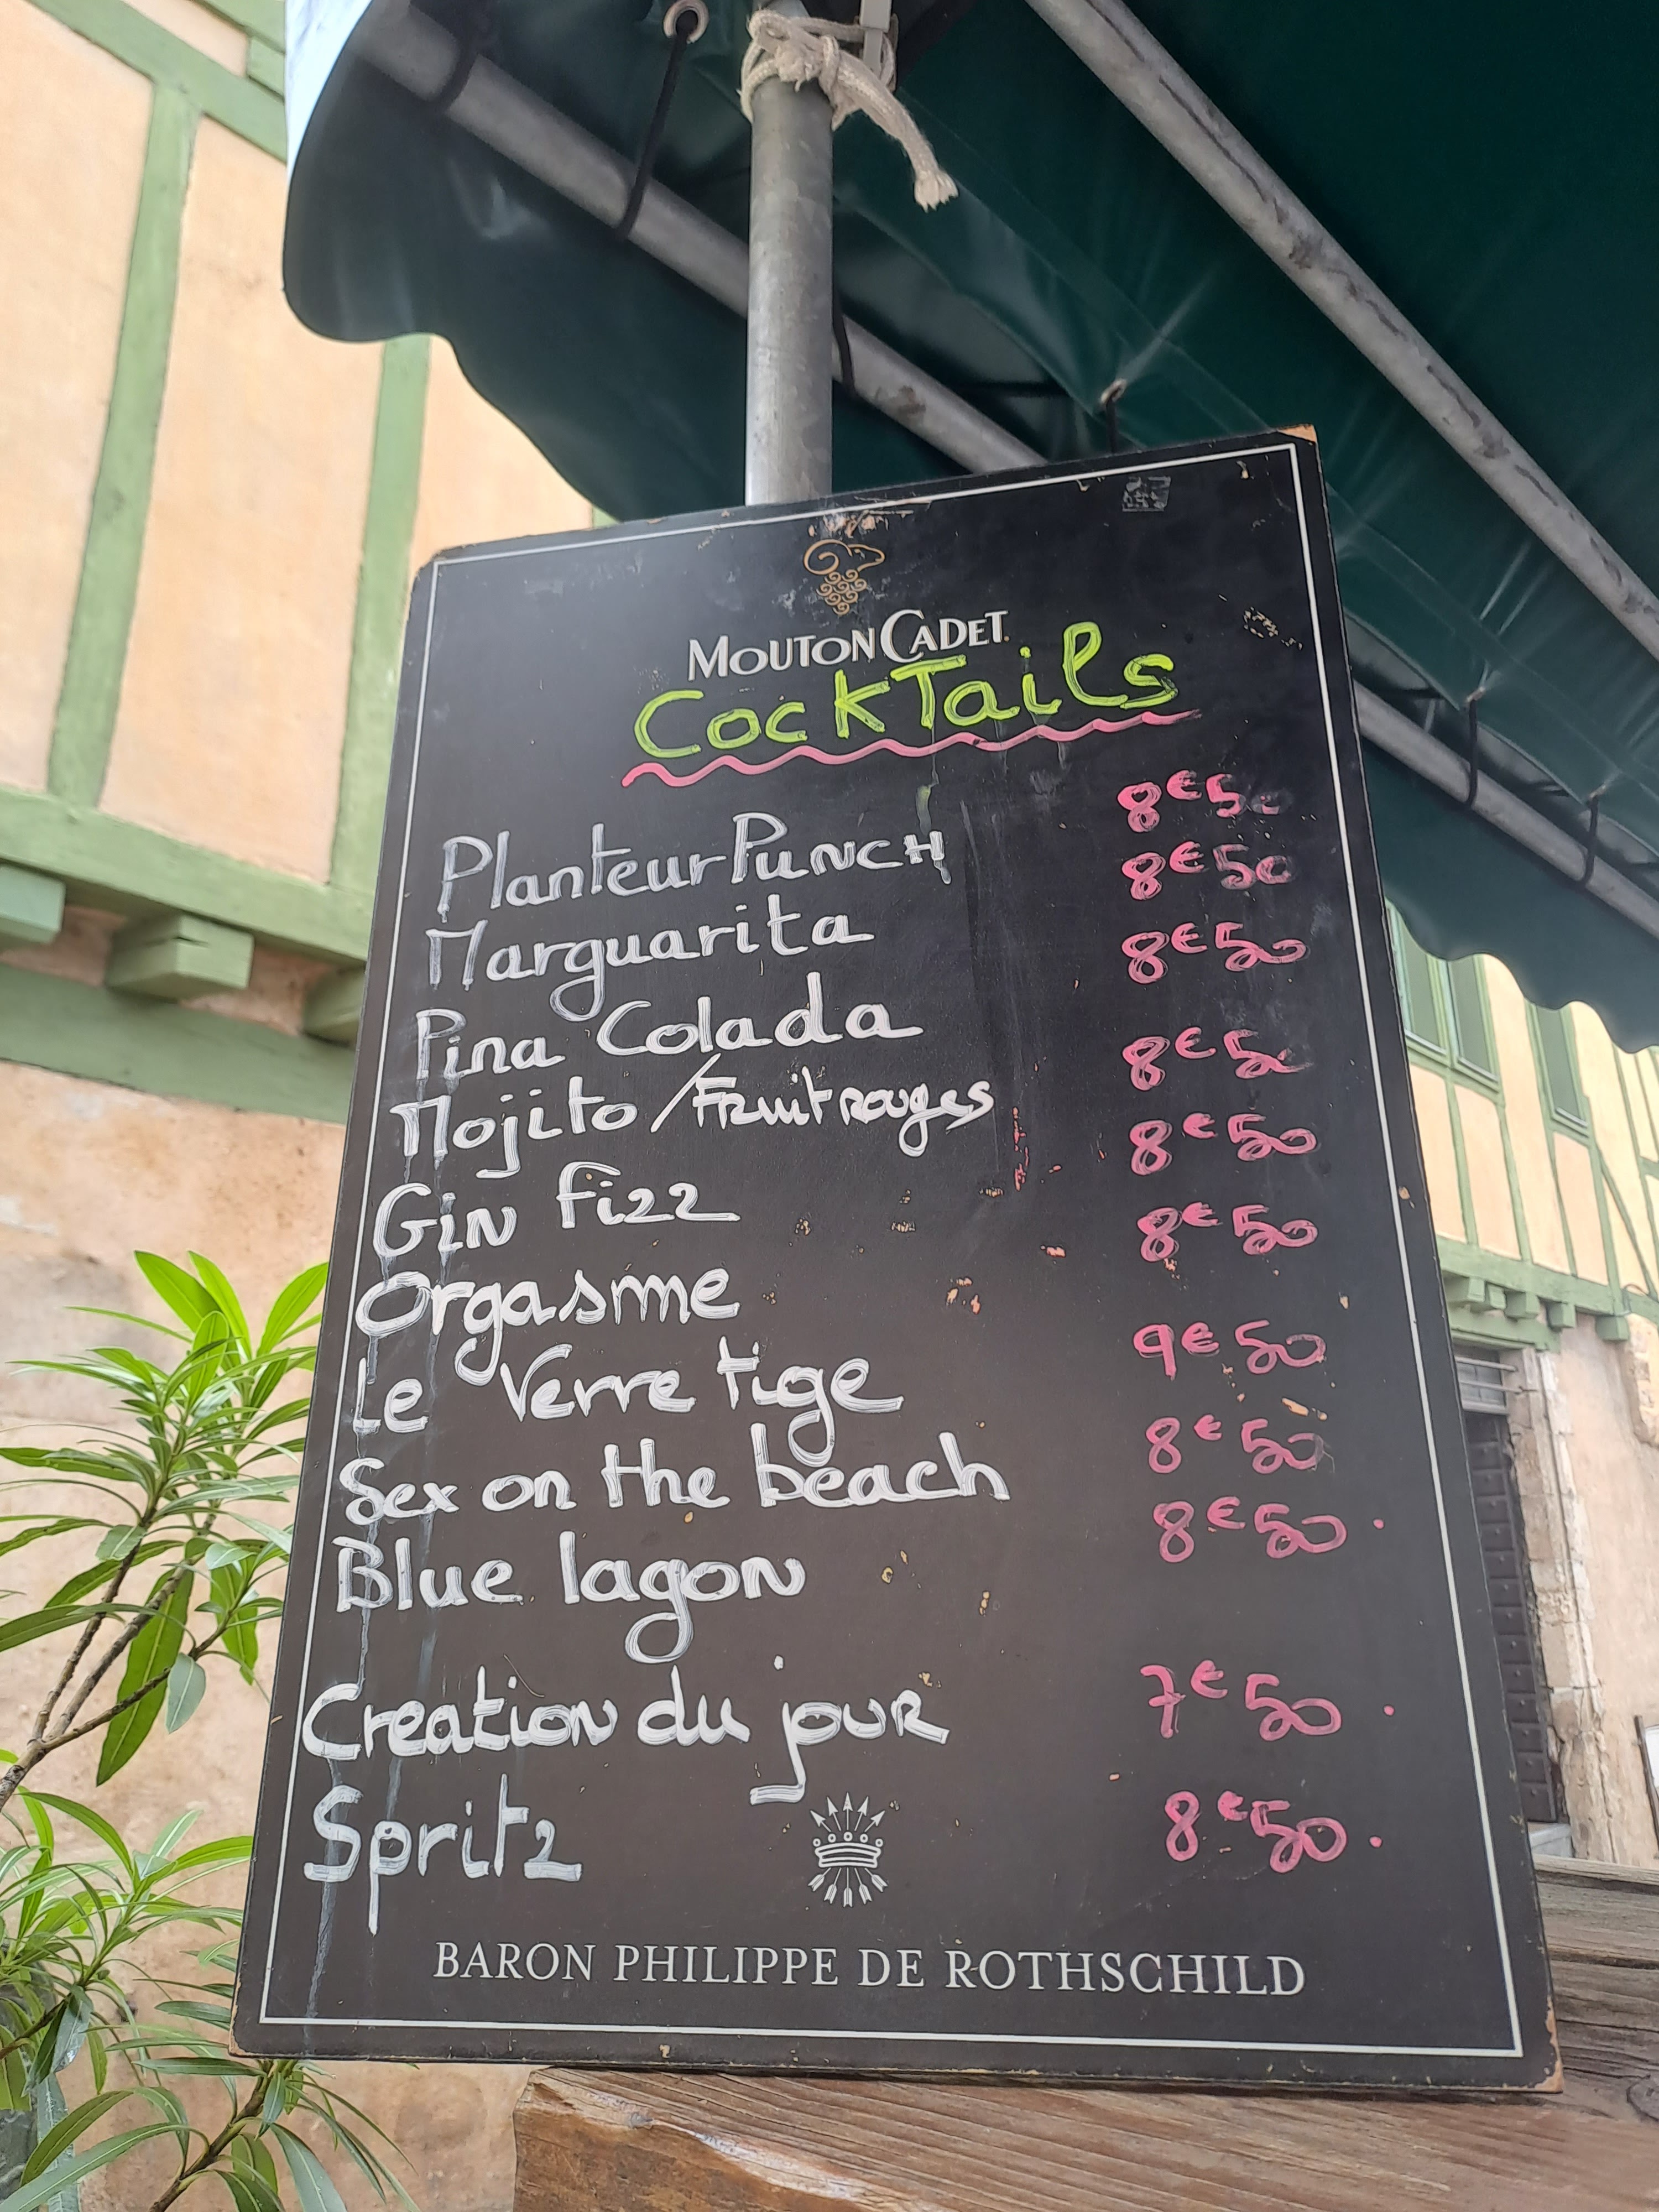 MOUTON CADET
CockTails
Planteur Punch 8€50
Marguarita 8€50
Pina Colada 8€50
Mojito / Fruit rouges 8€50
Gin fizz 8€50
Orgasme 8€50
Le Verre tige 9€50
Sex on the beach 8€50
Blue lagon 8€50.
Creation du jour 7€50.
Spritz 8€50.
BARON PHILIPPE DE ROTHSCHILD